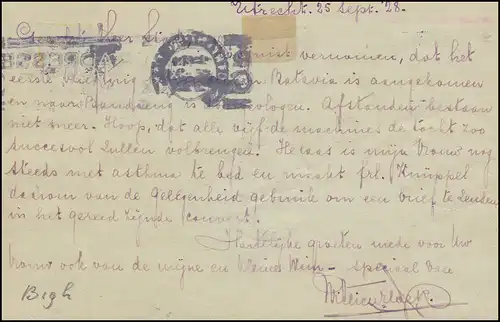 Utrecht. 25 Sept. '28.
Geachte Heer
juist vernomen, dat het
eerste vliegtuig Batavia is aangekomen
en naar Bandoeng Afstanden bestaan
niet meer. Hoop, dat alle vijf de machines de tocht zoo
succesvol zullen volbrengen. Helaas is mijn vrouw nog
steeds met asthma te bed en maakt frl. Knüppel
daarom van de gelegenheid gebruik om een brief te zenden
in het gereed zijnde couvert.
Hartelijke groeten mede voor Uw
vrouw ook van de mijne en kleine Wim - speciaal van
Bigh